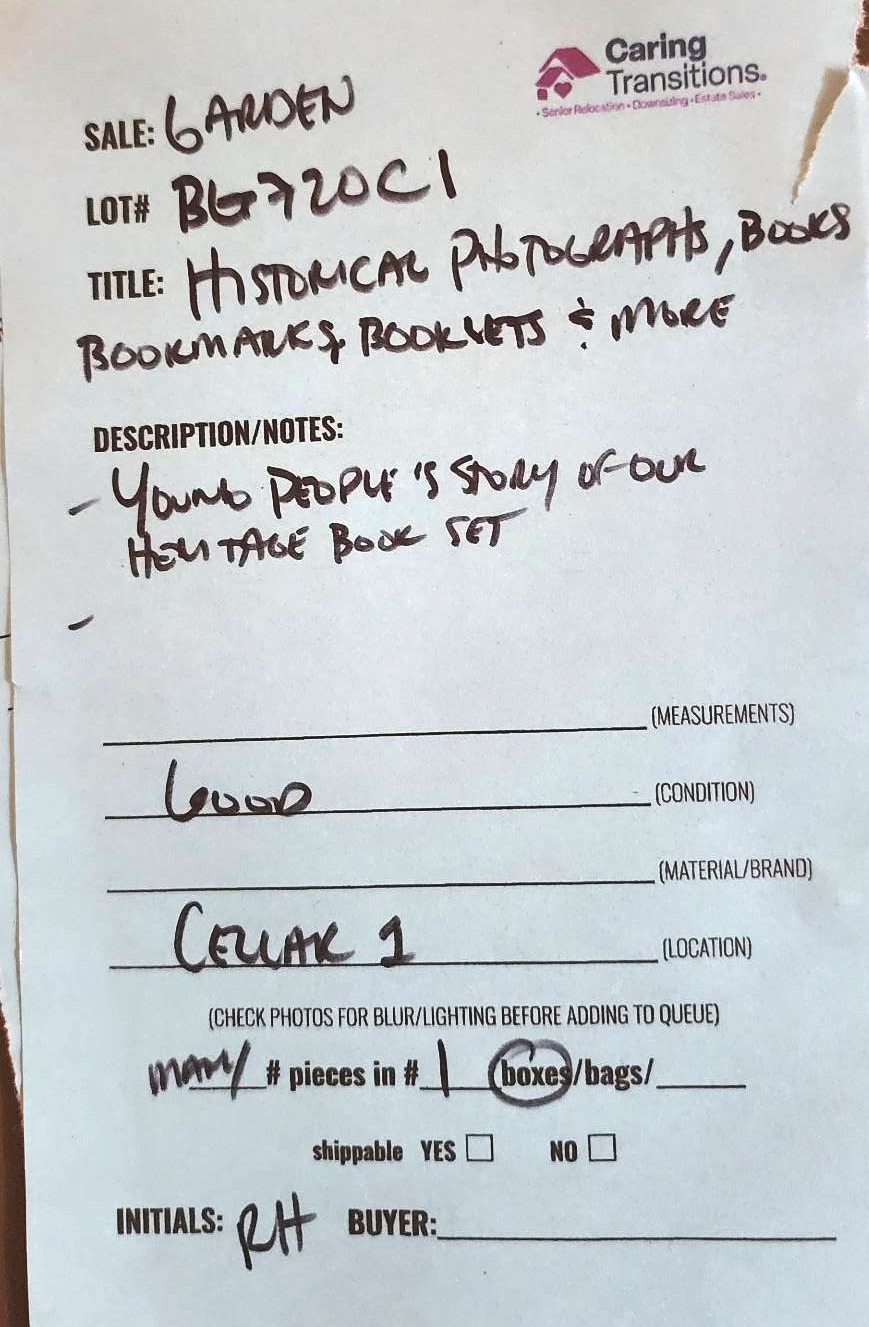 Caring
Transitions.
• Senior Relocation • Downsizing • Estate Sales •
SALE: GARDEN
LOT# BG720C1
TITLE: HISTORICAL PHOTOGRAPHS, BOOKS
BOOKMARKS, BOOKLETS & MORE
DESCRIPTION/NOTES:
- YOUNG PEOPLE'S STORY OF OUR
HERITAGE BOOK SET
-
(MEASUREMENTS)
GOOD (CONDITION)
(MATERIAL/BRAND)
CELLAR 1 (LOCATION)
(CHECK PHOTOS FOR BLUR/LIGHTING BEFORE ADDING TO QUEUE)
MANY # pieces in # 1 boxes/bags/
shippable YES NO
INITIALS: RH BUYER: